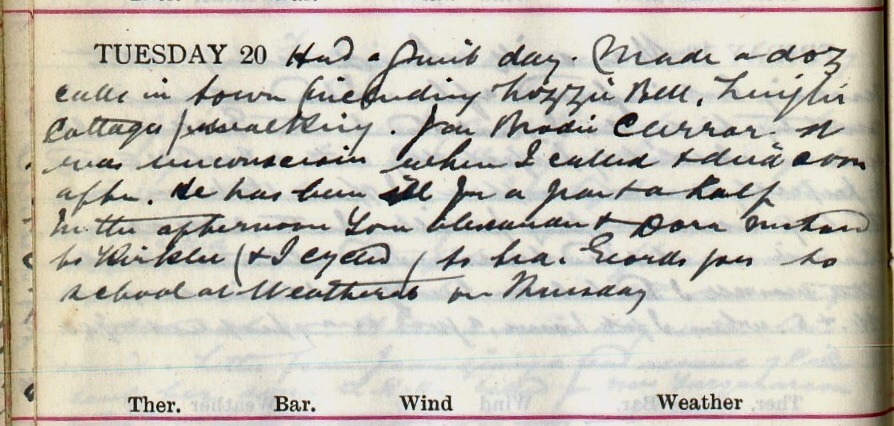 TUESDAY 20 Had a quiet day. Made a doz
calls in town (including Lizzie Bell,
Cottages) walking. Jas Brodie Currar. st
was unconscious when I called & died soon
after. He has been ill for a year & a half
In the afternoon Tom Alexander & Dora
to Kirklee (& I cycled) to tea. George goes to
school at on Thursday
Ther. Bar. Wind Weather